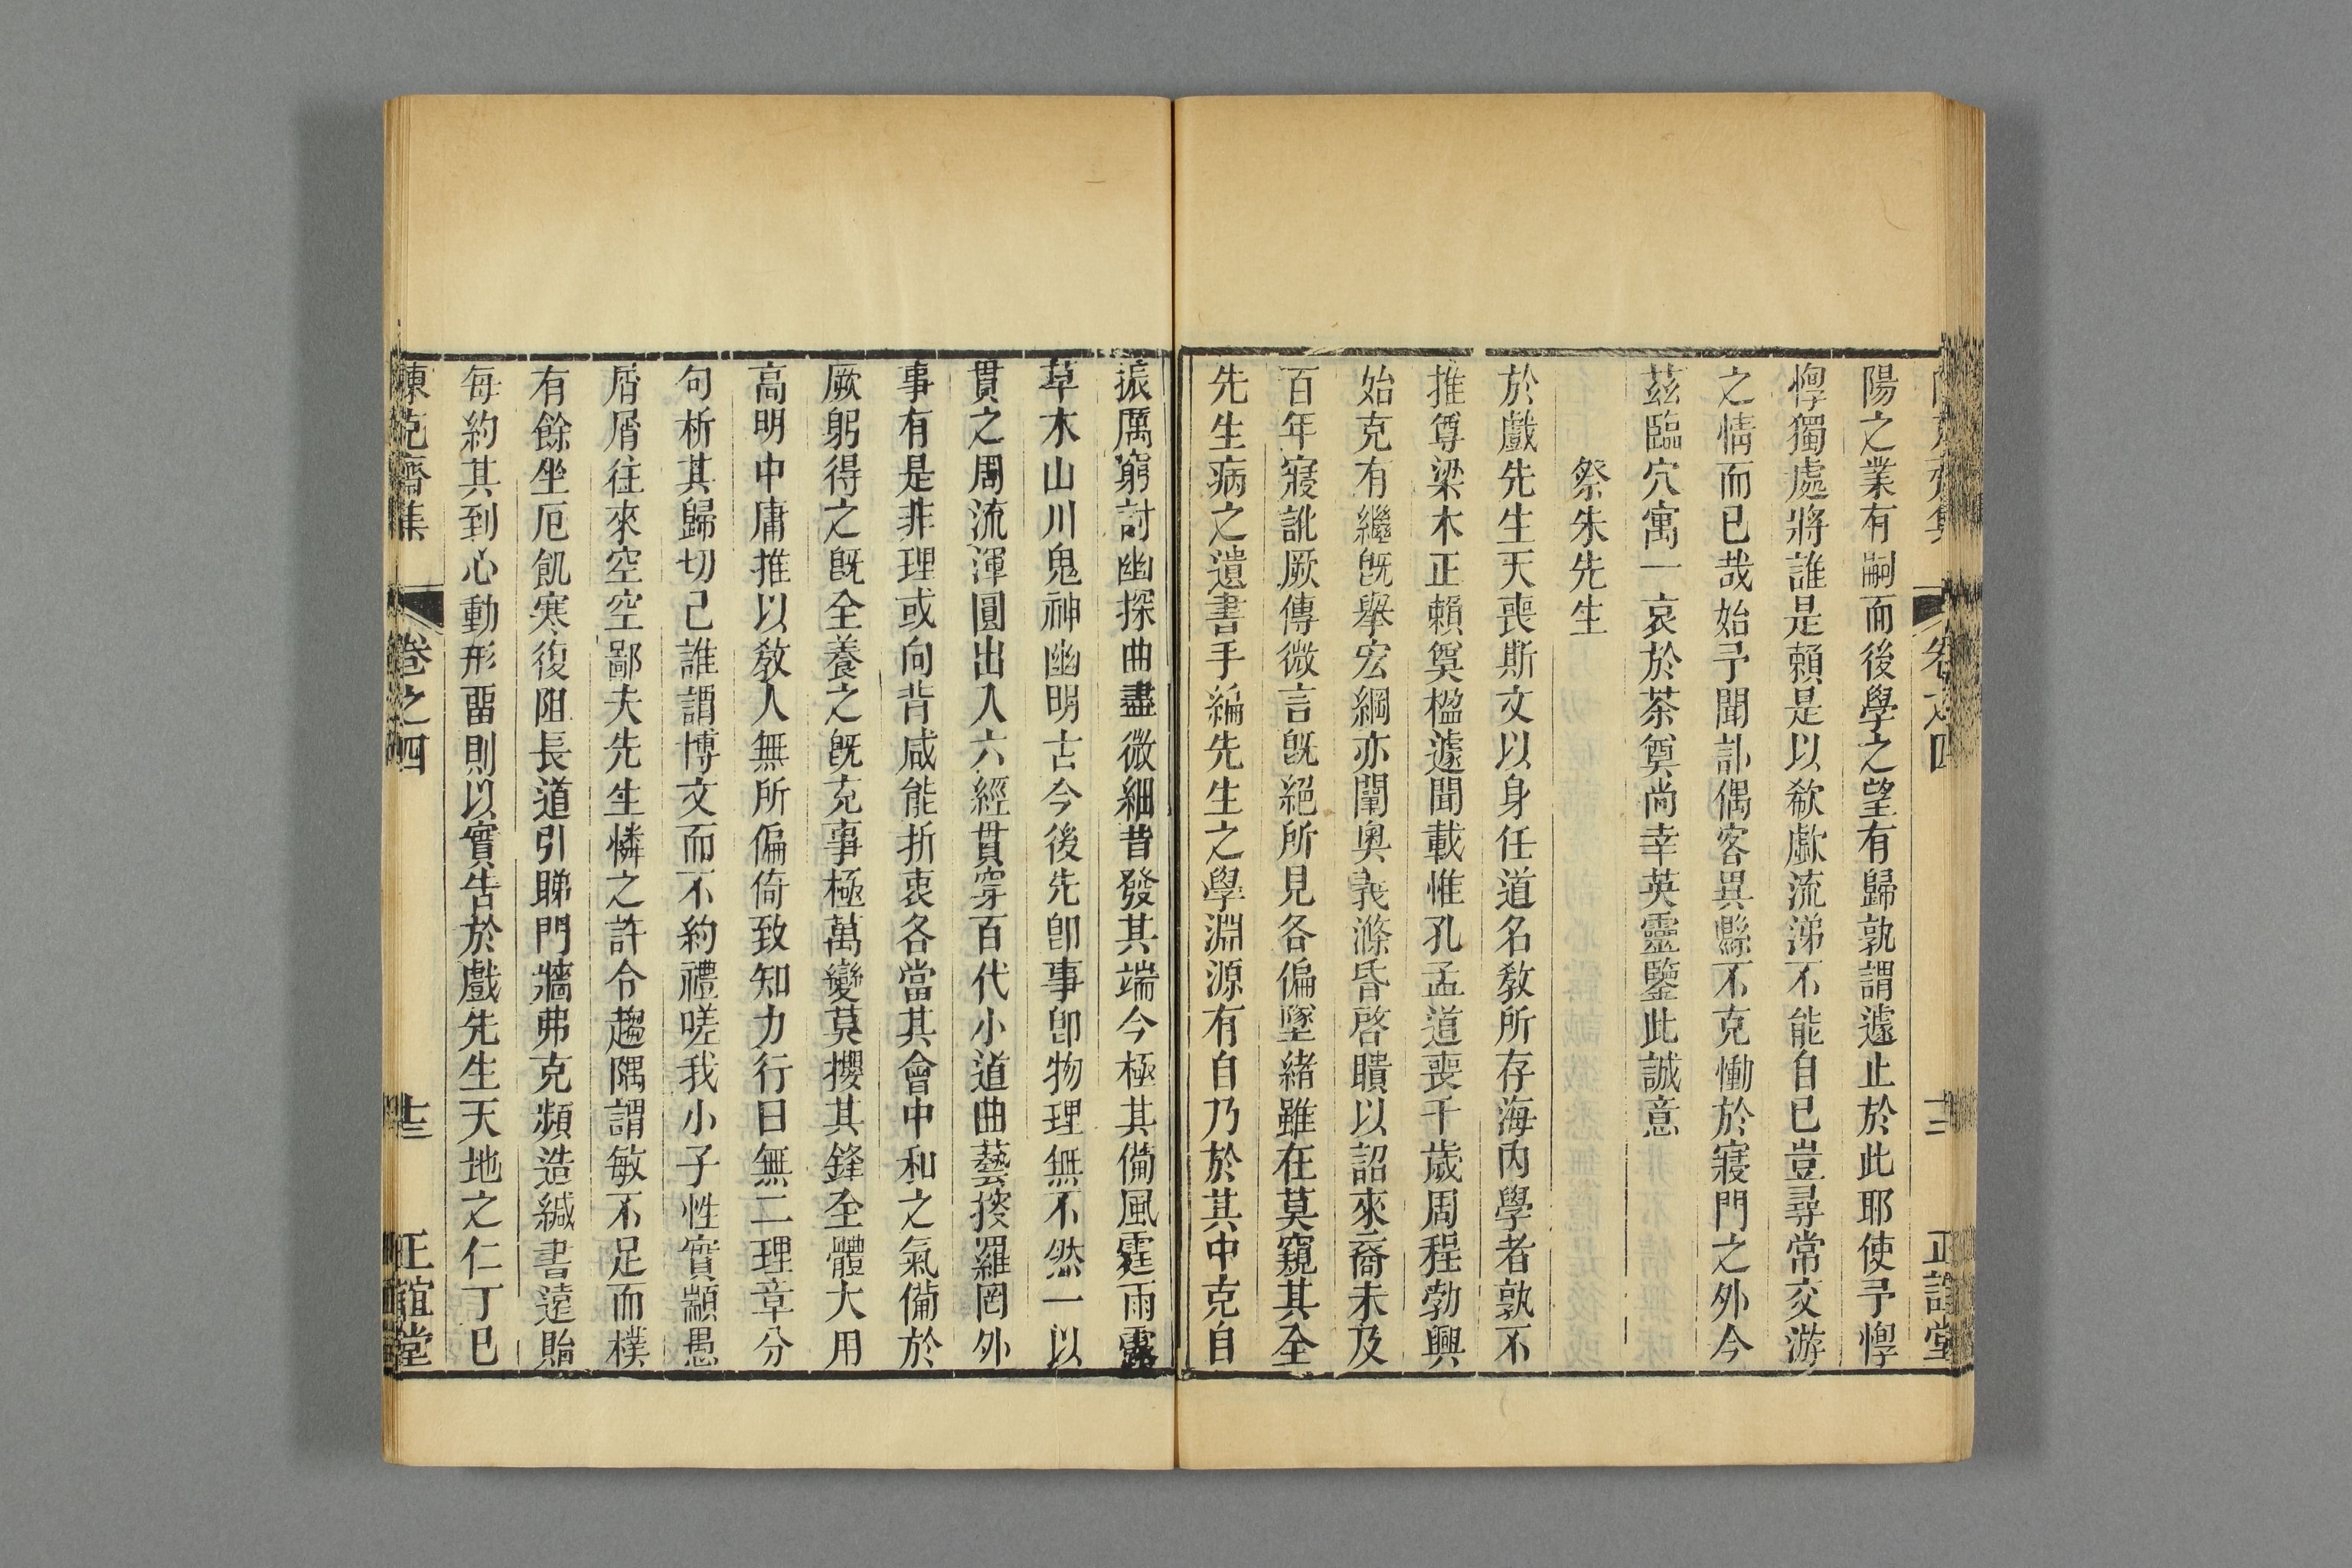 陽之業有嗣而後學之望有歸孰謂遽止於此耶使予惸
惸獨處將誰是賴是以欷歔流涕不能自已豈尋常交游
之情而已哉始予聞訃偶客異縣不克慟於寢門之外今
茲臨穴寓一哀於茶奠尚幸英靈鑒此誠意
祭朱先生
於戲先生天喪斯文以身任道名教所存海內學者孰不
推尊梁木正賴奠楹遽聞載惟孔孟道喪千歲周程勃興
始克有繼旣舉宏綱亦闡奧義滌昏啓聵以詔來裔未及
百年寢訛厥傳微言旣絕所見各偏墜緒雖在莫窺其全
先生病之遺書手編先生之學淵源有自乃於其中克自
振厲窮討幽探曲盡微細昔發其端今極其備風霆雨露
草木山川鬼神幽明古今後先卽事卽物理無不然一以
貫之周流渾圓出入六經貫穿百代小道曲藝搜羅罔外
事有是非理或向背咸能折衷各當其會中和之氣備於
厥躬得之旣全養之旣充事極萬變莫攖其鋒全體大用
高明中庸推以教人無所偏倚致知力行曰無二理章分
句析其歸切己誰謂博文而不約禮嗟我小子性實顓愚
屑屑往來空空鄙夫先生憐之許令趨隅謂敏不足而樸
有餘坐厄飢寒復阻長道引睇門牆弗克頻造緘書遠貽
每約其到心動形留則以實告於戲先生天地之仁丁巳
陳克齋集 卷之四 十三 正誼堂